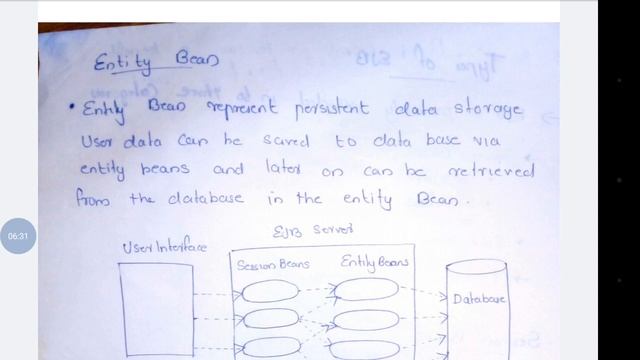 Entity Bean
• Entity Bean represent persistent data storage
User data can be saved to data base via
entity beans and later on can be retrieved
from the database in the entity Bean.
EJB Server
User Interface
Session Beans Entity Beans
Database
06:31